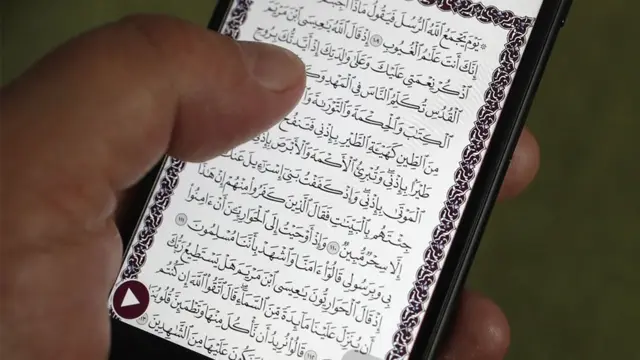 ۞ يَوْمَ يَجْمَعُ ٱللَّهُ ٱلرُّسُلَ فَيَقُولُ مَاذَآ
إِنَّكَ أَنتَ عَلَّٰمُ ٱلْغُيُوبِ ١٠٩ إِذْ قَالَ ٱللَّهُ يَٰعِيسَى ٱبْنَ مَرْيَمَ
ٱذْكُرْ نِعْمَتِى عَلَيْكَ وَعَلَىٰ وَٰلِدَتِكَ إِذْ أَيَّدتُّكَ بِرُوحِ
ٱلْقُدُسِ تُكَلِّمُ ٱلنَّاسَ فِى ٱلْمَهْدِ
ٱلْكِتَٰبَ وَٱلْحِكْمَةَ وَٱلتَّوْرَىٰةَ
مِنَ ٱلطِّينِ كَهَيْـَٔةِ ٱلطَّيْرِ بِإِذْنِى فَتَنفُخُ
طَيْرَۢا بِإِذْنِى وَتُبْرِئُ ٱلْأَكْمَهَ وَٱلْأَبْرَصَ
ٱلْمَوْتَىٰ بِإِذْنِى وَإِذْ كَفَفْتُ بَنِىٓ إِسْرَٰٓءِيلَ عَنكَ
جِئْتَهُم بِٱلْبَيِّنَٰتِ فَقَالَ ٱلَّذِينَ كَفَرُوا۟ مِنْهُمْ إِنْ هَٰذَآ
إِلَّا سِحْرٌ مُّبِينٌ ١١٠ وَإِذْ أَوْحَيْتُ إِلَى ٱلْحَوَارِيِّـۧنَ أَنْ ءَامِنُوا۟
بِى وَبِرَسُولِى قَالُوٓا۟ ءَامَنَّا وَٱشْهَدْ بِأَنَّنَا مُسْلِمُونَ ١١١
إِذْ قَالَ ٱلْحَوَارِيُّونَ يَٰعِيسَى ٱبْنَ مَرْيَمَ هَلْ يَسْتَطِيعُ رَبُّكَ
أَن يُنَزِّلَ عَلَيْنَا مَآئِدَةً مِّنَ ٱلسَّمَآءِ قَالَ ٱتَّقُوا۟ ٱللَّهَ إِن كُنتُم
١١٢ قَالُوا۟ نُرِيدُ أَن نَّأْكُلَ مِنْهَا وَتَطْمَئِنَّ قُلُوبُنَا
وَنَكُونَ عَلَيْهَا مِنَ ٱلشَّٰهِدِينَ ١١٣